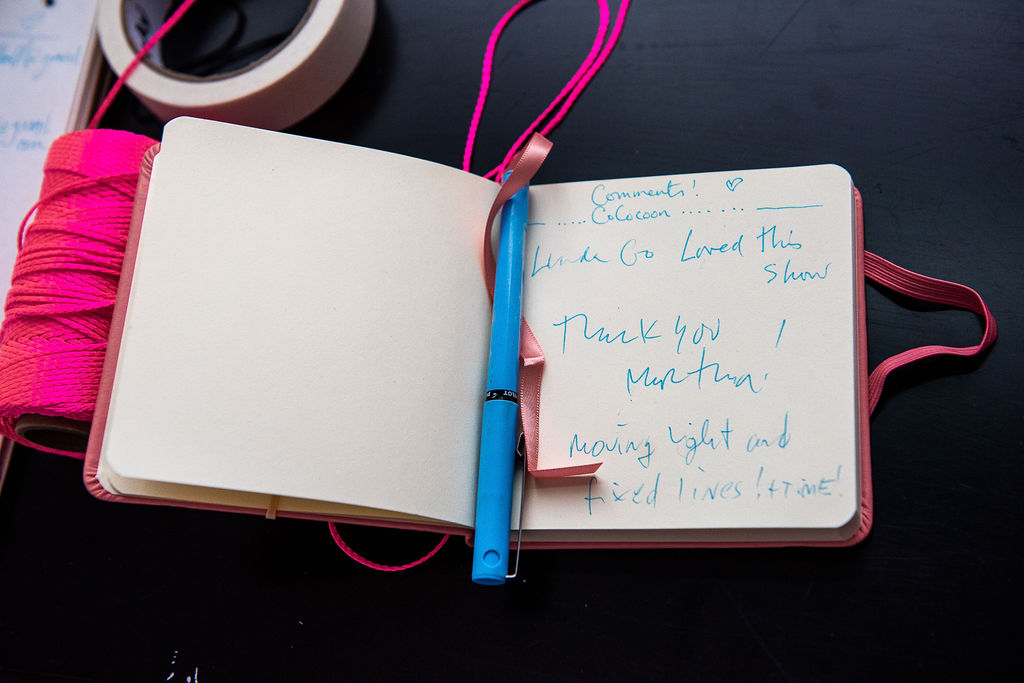 Comments! ♡
CoCocoon
Linda Go Loved this
Show
Thank you!
moving light and
fixed lines! + TIME!
PILOT